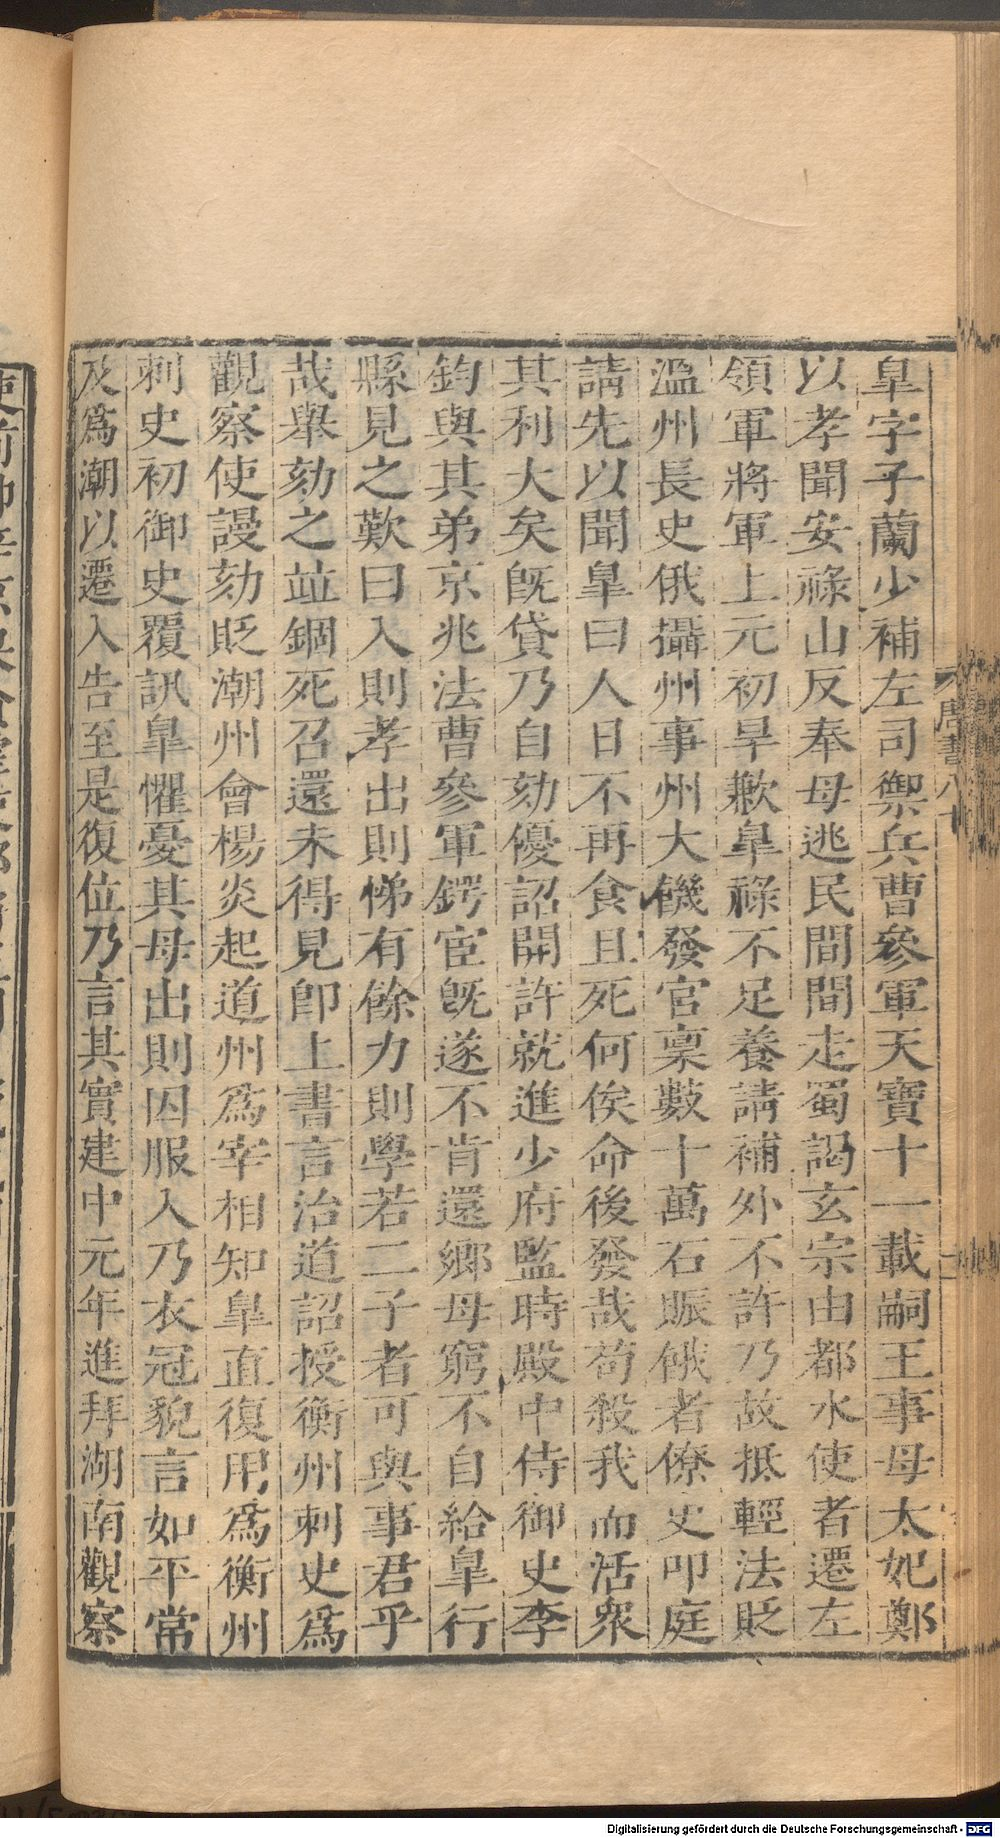 皐字子蘭少補左司禦兵曹參軍天寶十一載嗣王事母太妃鄭
以孝聞安祿山反奉母逃民間間走蜀謁玄宗由都水使者遷左
領軍將軍上元初旱歉皐祿不足養請補外不許乃故抵輕法貶
溫州長史俄攝州事州大饑發官稟數十萬石賑餓者僚史叩庭
請先以聞皐曰人日不再食且死何俟命後發哉苟殺我而活衆
其利大矣旣貸乃自劾優詔開許就進少府監時殿中侍御史李
鈞與其弟京兆法曹參軍鍔宦旣遂不肯還鄉母窮不自給皐行
縣見之歎曰入則孝出則悌有餘力則學若二子者可與事君乎
哉舉劾之竝錮死召還未得見卽上書言治道詔授衡州刺史爲
觀察使謾劾貶潮州會楊炎起道州爲宰相知皐直復用爲衡州
刺史初御史覆訊皐懼憂其母出則囚服入乃衣冠貌言如平常
及爲潮以遷入告至是復位乃言其實建中元年進拜湖南觀察
唐書八十
二
Digitalisierung gefördert durch die Deutsche Forschungsgemeinschaft - DFG